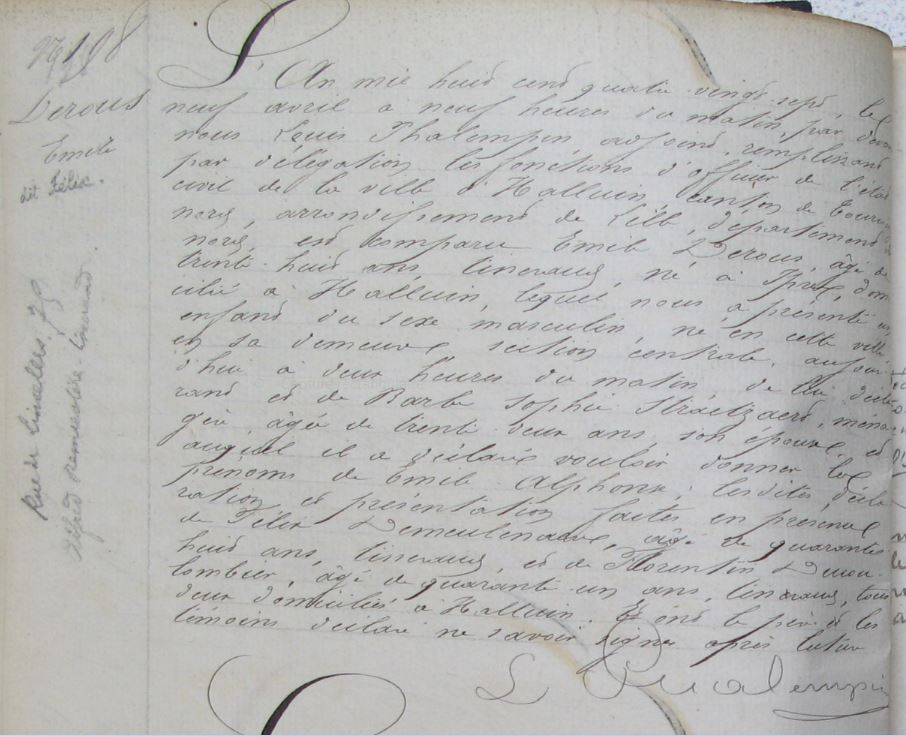 N° 198
Derous
Emile
dit Félix.
Rue de Linselles 75
Alfred
L'An mil huit cent quatre vingt sept le
neuf avril à neuf heures du matin, par devant
nous Louis Phalempin adjoint remplissant
par délégation les fonctions d'officier de l'état
civil de la ville d'Halluin, canton de Tourcoing
nord, arrondissement de Lille, département du
nord, est comparu Emile Derous, âgé de
trente-huit ans, tisserand, né à Ypres, domi
cilié à Halluin, lequel nous a présenté un
enfant du sexe masculin, né en cette ville
en sa demeure section centrale, aujour
d'hui à deux heures du matin de lui décla
rant et de Barbe Sophie Straetzaert, ména
gère, âgée de trente deux ans, son épouse, et
auquel il a déclaré vouloir donner les
prénoms de Emile Alphonse; lesdites décla
ration et présentation faites en présence
de Félix Demeulenaere, âgé de quarante
huit ans, tisserand, et de Florentin Ducou
lombier, âgé de quarante un ans, tisserand, tous
deux domiciliés à Halluin. Et ont le père et les
témoins déclaré ne savoir signer après lecture
L Phalempin